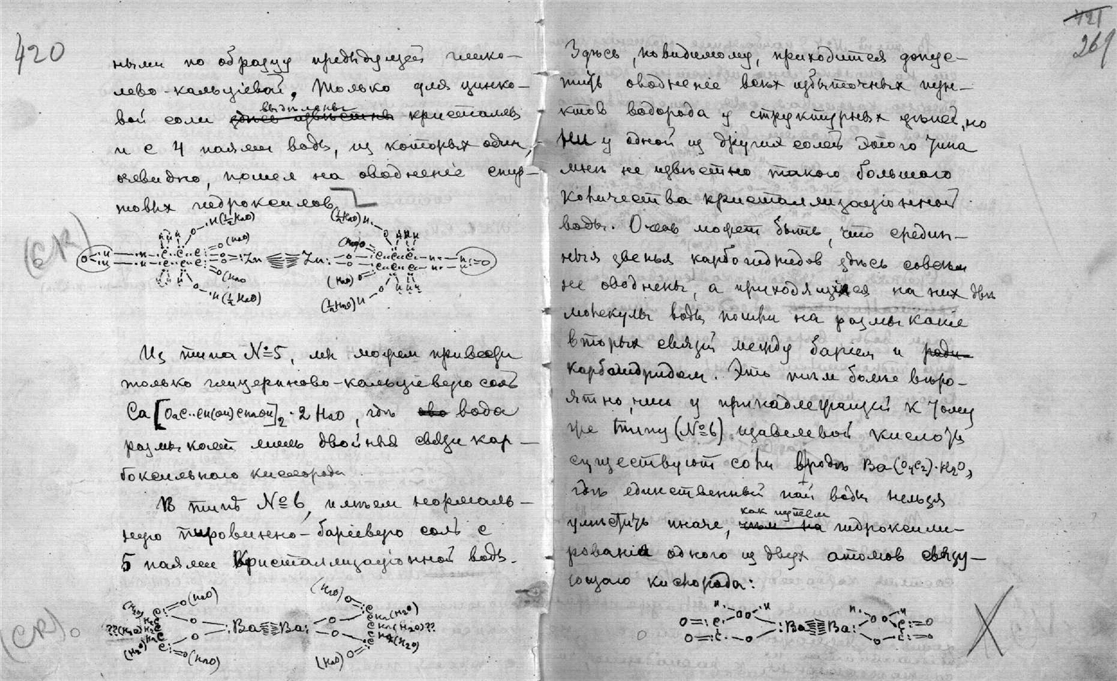 420
ными по образцу предыдущей глико-
лево-кальціевой. Только для цинко-
вой соли выделены кристаллы
и с 4 паями воды, из которых один,
очевидно, пошел на оводненіе спир-
товых гидроксилов.
(½H₂O) (½H₂O)
(H₂O) (H₂O)
:Zn Zn:
(H₂O) (H₂O)
(½H₂O) (½H₂O)
Из типа №5, мы можем привести
только глицериново-кальціевую соль
Ca[O₂C··CH(OH)CH₂OH]₂·2H₂O, где вода
размыкает лишь двойныя связи кар-
боксильного кислорода.
В типе №6, имеем нормаль-
ную
5 паями кристаллизаціонной воды.
(H₂O) (H₂O)
??(H₂O) :Ba Ba: (H₂O)??
(H₂O) (H₂O)
421
269
Здесь, повидимому, приходится допус-
тить оводненіе всех избыточных пунк-
ктов водорода у структурных цепей, но
ни у одной из других солей этого типа
мне не известно такого большого
количества кристаллизаціонной
воды. Очень может быть, что средин-
ныя звенья карбогидридов здесь совсем
не оводнены, а приходящіяся на них две
молекулы воды пошли на размыканіе
вторых связей между баріем и
карбогидридом. Это тем более веро-
ятно, что у принадлежащей к тому
же типу (№6) щавелевой кислоты
существуют соли вроде Ba(O₄C₂)·H₂O,
где единственный пай воды нельзя
уместить иначе, как путем гидроксили-
рованія одного из двух атомов связу-
ющаго кислорода:
:Ba Ba: